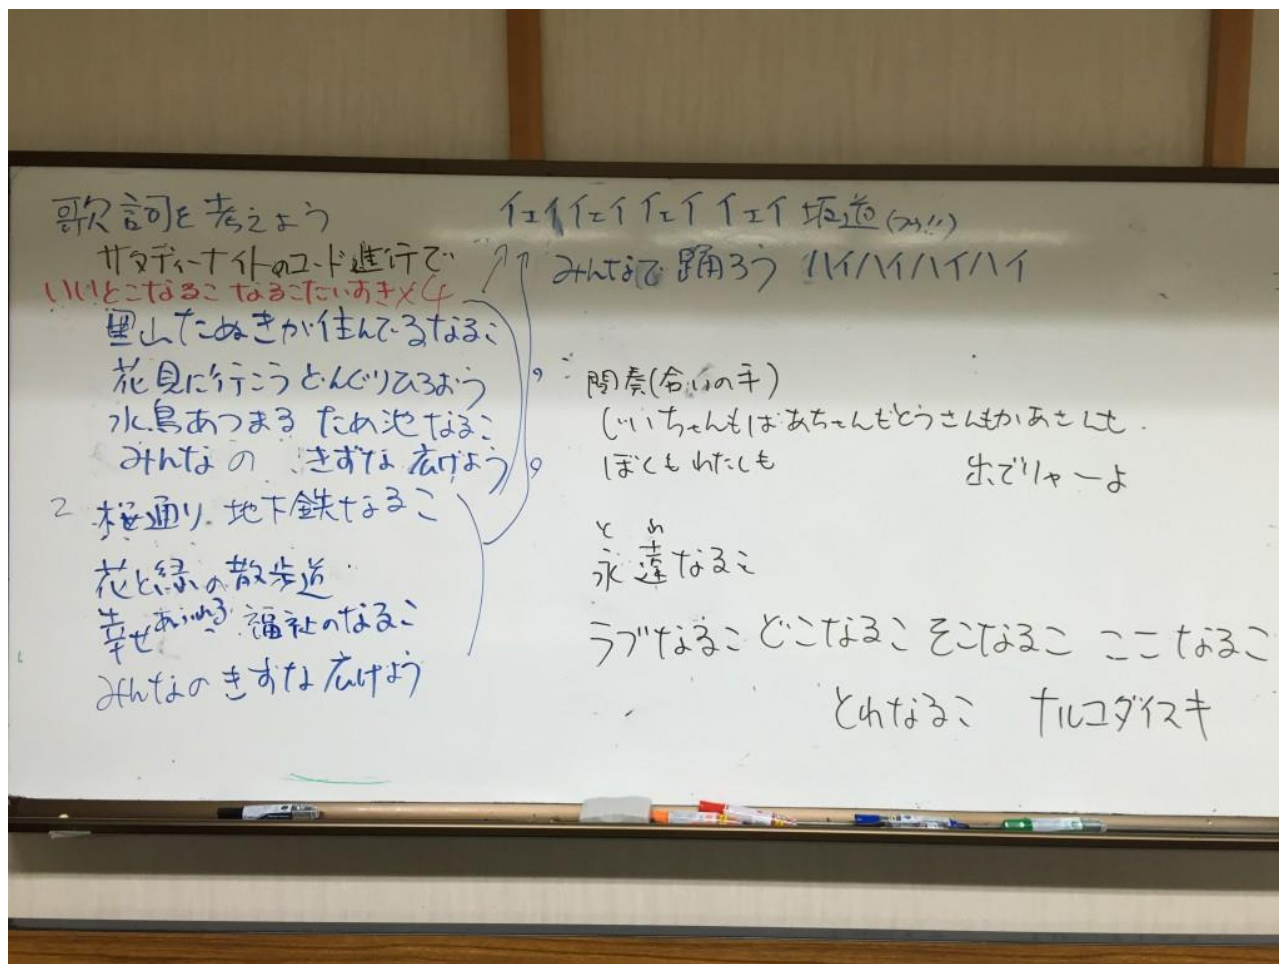 歌詞を考えよう
サタディーナイトのコード進行で
いいとこなるこ なるこだいすき×4
里山たぬきが住んでるなるこ
花見に行こうどんぐりひろおう
水鳥あつまる ため池なるこ
みんなの きずな広げよう
2 桜通り 地下鉄なるこ
花と緑の散歩道
幸せあふれる 福祉のなるこ
みんなのきずな広げよう
イェイイェイイェイイェイ坂道
みんなで踊ろう ハイハイハイハイ
間奏(合いの手)
じいちゃんもばあちゃんもとうさんもかあさんも
ぼくもわたしも 出でりゃーよ
とわ
永遠なるこ
ラブなるこ どこなるこ そこなるこ ここなるこ
とわなるこ ナルコダイスキ